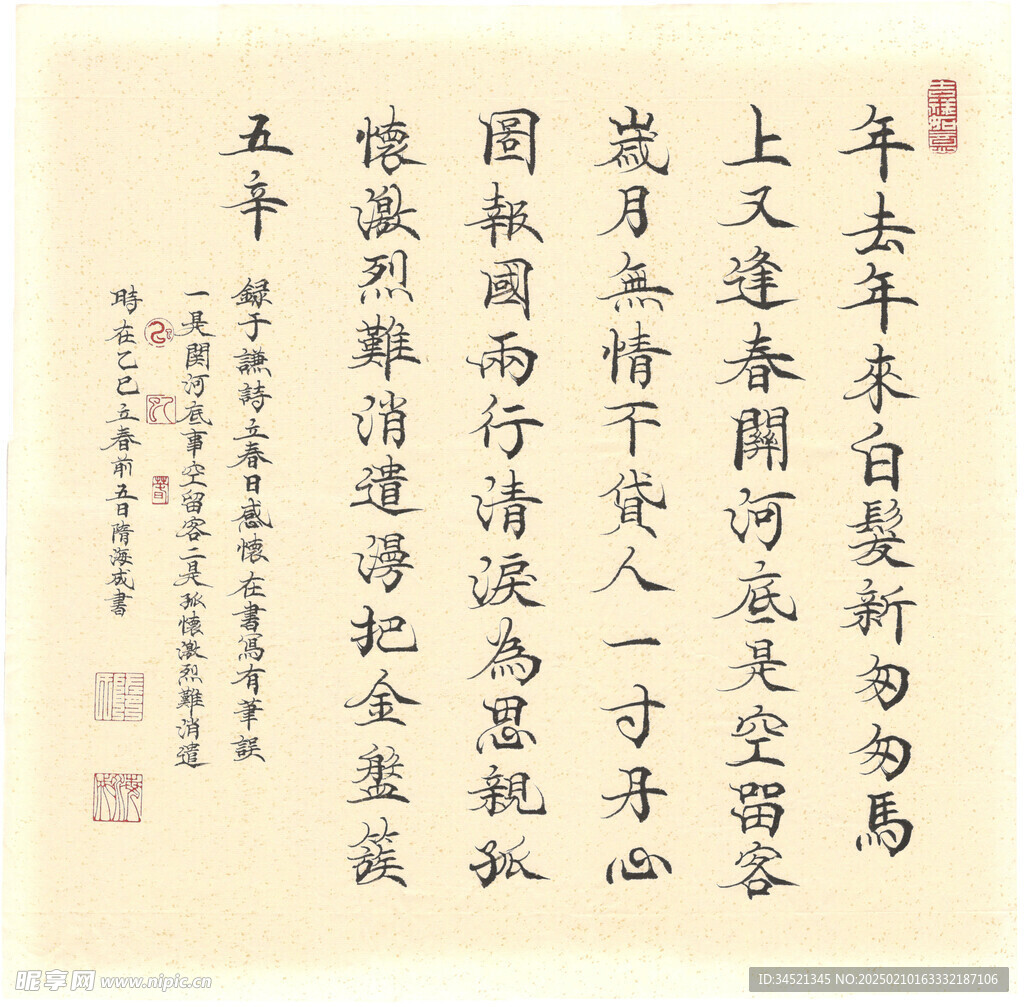 年去年來白髮新匆匆馬
上又逢春關河底是空留客
歲月無情不貸人一寸丹心
圖報國兩行清淚為思親孤
懷激烈難消遣漫把金盤簇
五辛
録于謙詩立春日感懷在書寫有筆誤
一是関河底事空留客二是孤懷激烈難消遣
時在乙巳立春前五日隋海成書
昵享网 www.nipic.cn
ID:34521345 NO:20250210163332187106